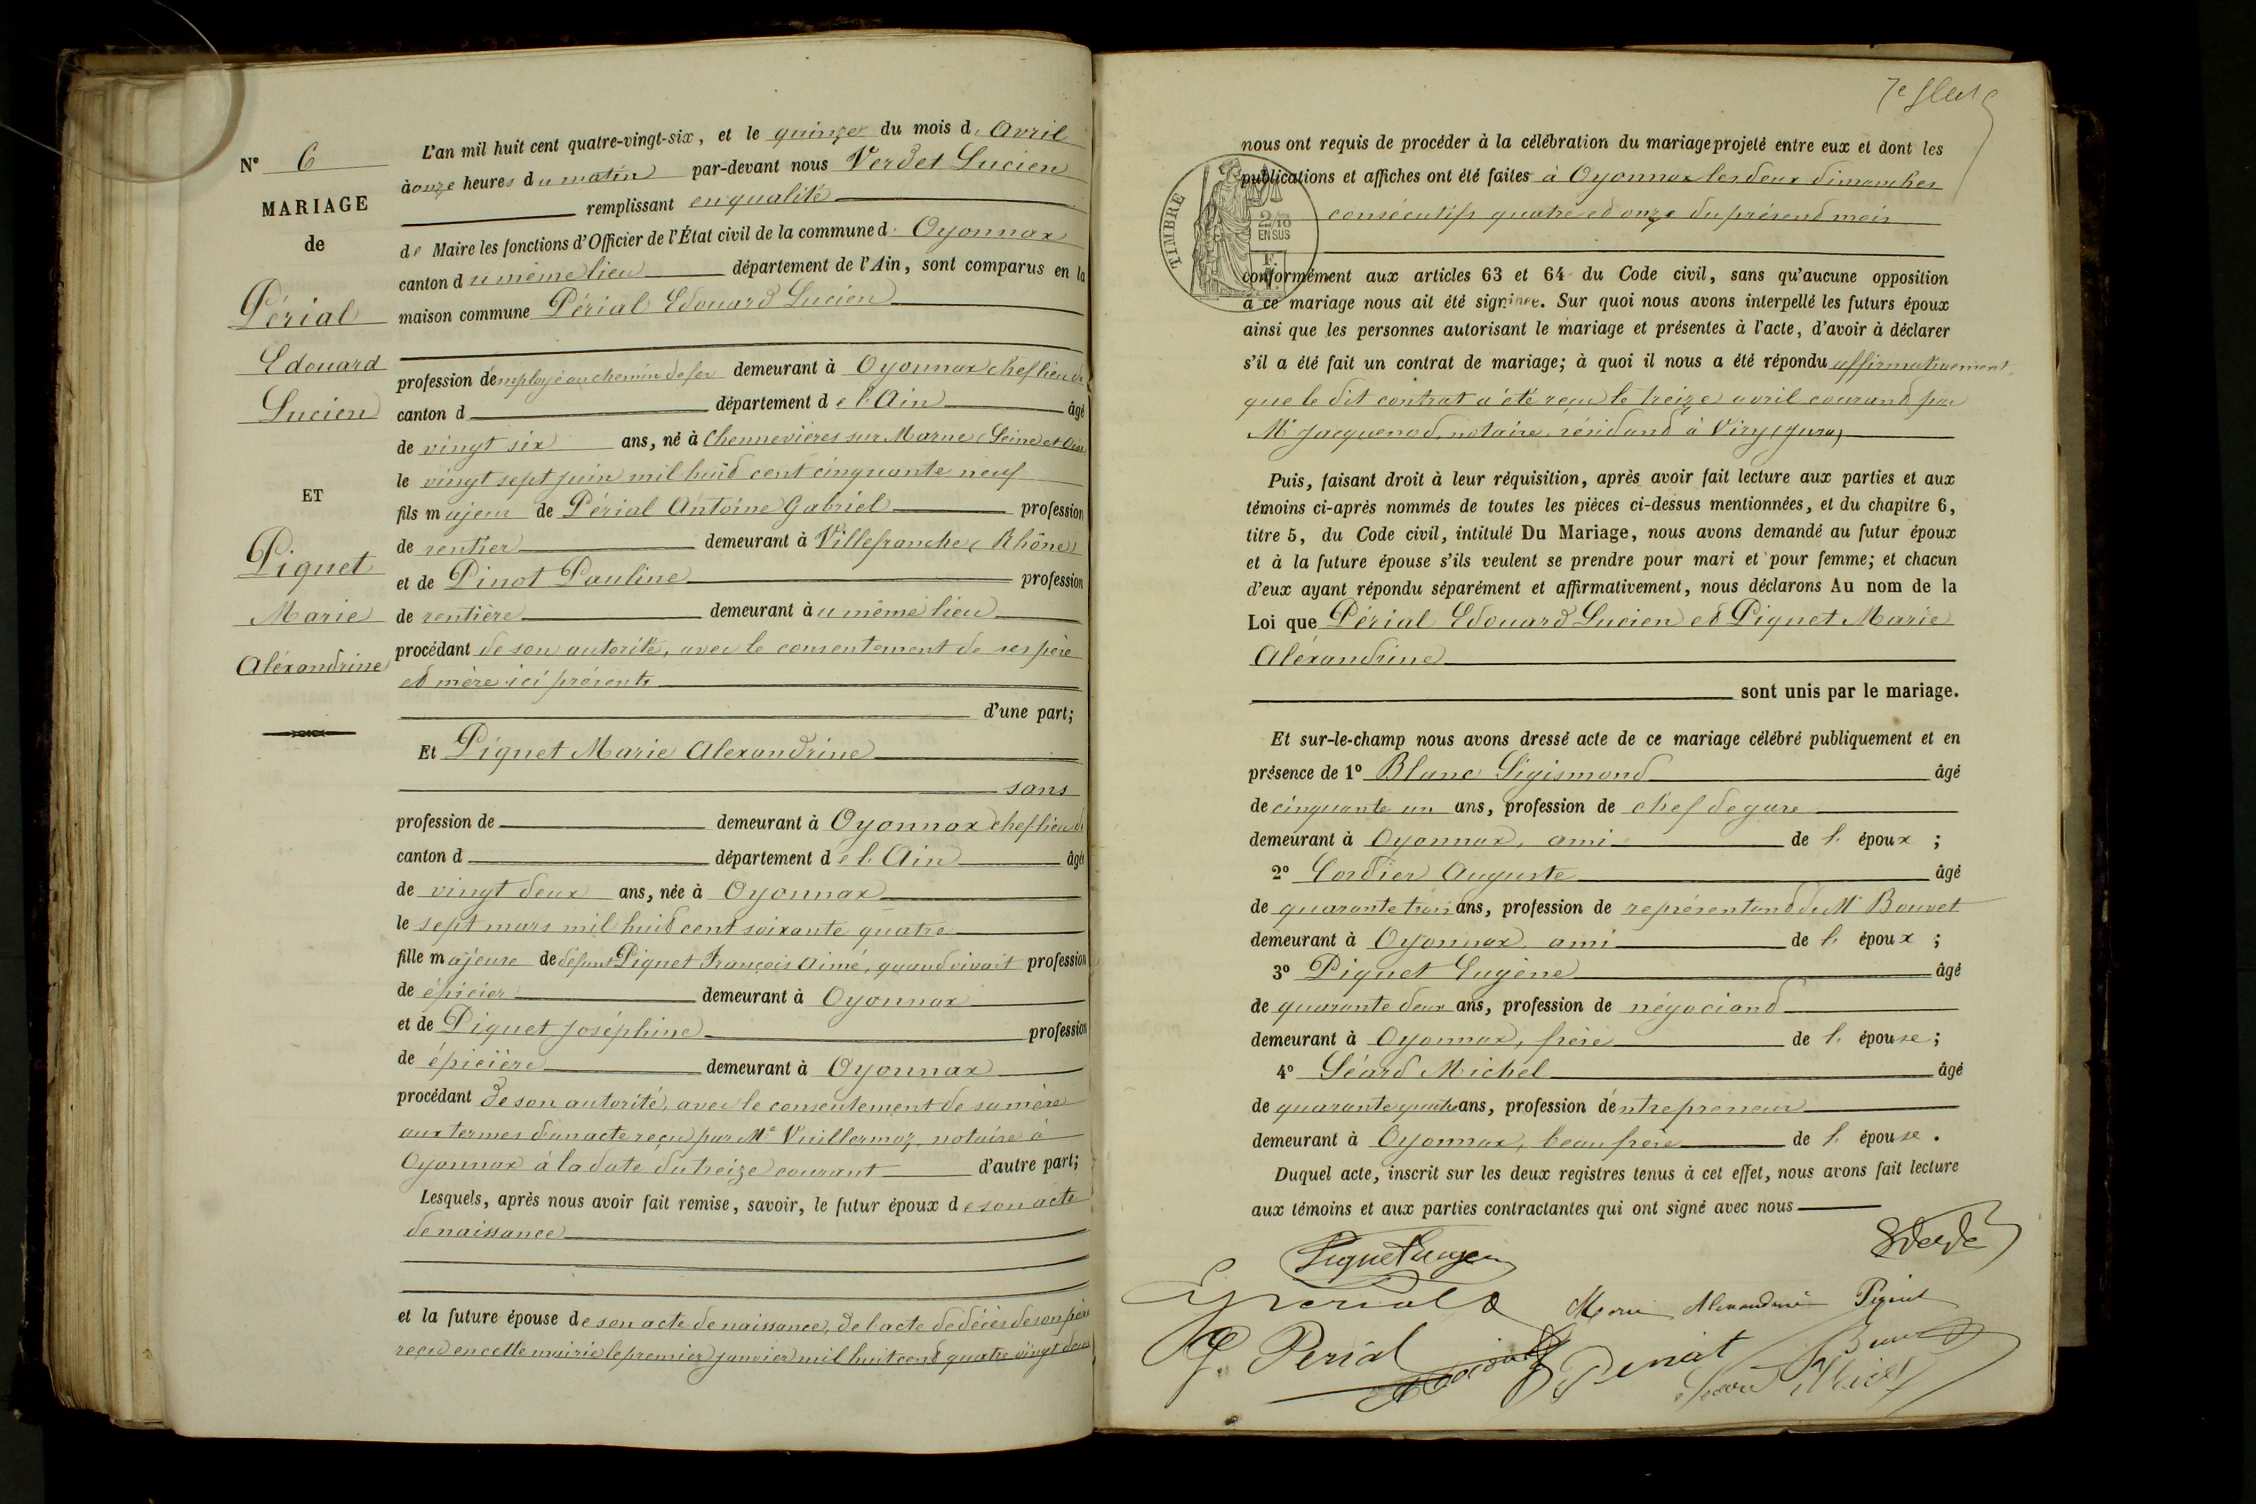 N° 6
MARIAGE
de
Périal
Edouard
Lucien
ET
Piquet
Marie
Aléxandrine
L'an mil huit cent quatre-vingt-six, et le quinze du mois d'Avril
à onze heures du matin par-devant nous Verdet Lucien
remplissant en qualité
de Maire les fonctions d'Officier de l'État civil de la commune d'Oyonnax
canton du même lieu département de l'Ain, sont comparus en la
maison commune Périal Edouard Lucien
profession d'employé au chemin de fer demeurant à Oyonnax chef lieu de
canton d département de l'Ain âgé
de vingt six ans, né à Chennevières sur Marne (Seine et Oise)
le vingt sept juin mil huit cent cinquante neuf
fils majeur de Périal Antoine Gabriel profession
de rentier demeurant à Villefranche (Rhône)
et de Pinot Pauline profession
de rentière demeurant au même lieu
procédant de son autorité, avec le consentement de ses père
et mère ici présents
d'une part;
Et Piquet Marie Alexandrine
sans
profession de demeurant à Oyonnax chef lieu de
canton d département de l'Ain âgée
de vingt deux ans, née à Oyonnax
le sept mars mil huit cent soixante quatre
fille majeure de défunt Piquet François Aimé, quand vivait profession
de épicier demeurant à Oyonnax
et de Piquet Joséphine profession
de épicière demeurant à Oyonnax
procédant de son autorité, avec le consentement de sa mère
aux termes d'un acte reçu par Me Vuillermoz, notaire à
Oyonnax à la date du treize courant d'autre part;
Lesquels, après nous avoir fait remise, savoir, le futur époux de son acte
de naissance
et la future épouse de son acte de naissance, de l'acte de décès de son père
reçu en cette mairie le premier janvier mil huit cent quatre vingt deux
7e
nous ont requis de procéder à la célébration du mariage projeté entre eux et dont les
publications et affiches ont été faites à Oyonnax les deux dimanches
consécutifs quatre et onze du présent mois
TIMBRE
2/10
EN SUS
conformément aux articles 63 et 64 du Code civil, sans qu'aucune opposition
à ce mariage nous ait été signifiée. Sur quoi nous avons interpellé les futurs époux
ainsi que les personnes autorisant le mariage et présentes à l'acte, d'avoir à déclarer
s'il a été fait un contrat de mariage; à quoi il nous a été répondu affirmativement,
que le dit contrat a été reçu le treize avril courant par
Me Jacquenod, notaire, résidant à Viry (Jura)
Puis, faisant droit à leur réquisition, après avoir fait lecture aux parties et aux
témoins ci-après nommés de toutes les pièces ci-dessus mentionnées, et du chapitre 6,
titre 5, du Code civil, intitulé Du Mariage, nous avons demandé au futur époux
et à la future épouse s'ils veulent se prendre pour mari et pour femme; et chacun
d'eux ayant répondu séparément et affirmativement, nous déclarons Au nom de la
Loi que Périal Edouard Lucien et Piquet Marie
Aléxandrine
sont unis par le mariage.
Et sur-le-champ nous avons dressé acte de ce mariage célébré publiquement et en
présence de 1° Blanc Sigismond âgé
de cinquante un ans, profession de chef de gare
demeurant à Oyonnax, ami de l'époux;
2° Cordier Auguste âgé
de quarante trois ans, profession de représentant de Mr Bouvet
demeurant à Oyonnax, ami de l'époux;
3° Piquet Eugène âgé
de quarante deux ans, profession de négociant
demeurant à Oyonnax, frère de l'épouse;
4° Séard Michel âgé
de quarante quatre ans, profession d'entrepreneur
demeurant à Oyonnax, beau frère de l'épouse.
Duquel acte, inscrit sur les deux registres tenus à cet effet, nous avons fait lecture
aux témoins et aux parties contractantes qui ont signé avec nous
Piquet Eugène
Verdet
Périal
Marie Alexandrine Piquet
G. Perial
Pinot